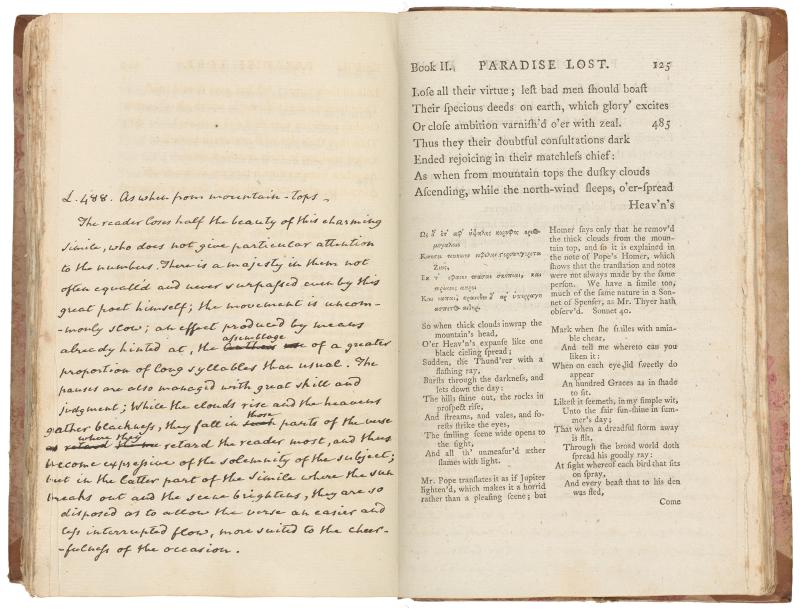 L. 488. As when from mountain-tops.
The reader loses half the beauty of this charming
simile, who does not give particular attention
to the numbers. There is a majesty in them not
often equall'd and never surpassed even by this
great poet himself; the movement is uncom-
-monly slow; an effect produced by means
already hinted at, the assemblage of a greater
proportion of long syllables than usual. The
pauses are also managed with great skill and
judgment; While the clouds rise and the heavens
gather blackness, they fall in such those parts of the verse
where they retard the reader most, and thus
become expressive of the solemnity of the subject;
but in the latter part of the simile where the sun
breaks out and the scene brightens, they are so
disposed as to allow the verse an easier and
less interrupted flow, more suited to the cheer-
-fulness of the occasion.
Book II. PARADISE LOST. 125
Lose all their virtue; leſt bad men ſhould boaſt
Their ſpecious deeds on earth, which glory' excites
Or cloſe ambition varniſh'd o'er with zeal. 485
Thus they their doubtful conſultations dark
Ended rejoicing in their matchleſs chief:
As when from mountain tops the duſky clouds
Aſcending, while the north-wind ſleeps, o'er-ſpread
Heav'n's
So when thick clouds inwrap the
mountain's head,
O'er Heav'n's expanſe like one
black cieling ſpread;
Sudden, the Thund'rer with a
flaſhing ray,
Burſts through the darkneſs, and
lets down the day:
The hills ſhine out, the rocks in
proſpect riſe,
And ſtreams, and vales, and fo-
reſts ſtrike the eyes,
The ſmiling ſcene wide opens to
the ſight,
And all th' unmeaſur'd æther
flames with light.
Mr. Pope tranſlates it as if Jupiter
lighten'd, which makes it a horrid
rather than a pleaſing ſcene; but
Homer ſays only that he remov'd
the thick clouds from the moun-
tain top, and ſo it is explained in
the note of Pope's Homer, which
ſhows that the tranſlation and notes
were not always made by the ſame
perſon. We have a ſimile too,
much of the ſame nature in a Son-
net of Spenſer, as Mr. Thyer hath
obſerv'd. Sonnet 40.
Mark when ſhe ſmiles with amia-
ble chear,
And tell me whereto can you
liken it:
When on each eye-lid ſweetly do
appear
An hundred Graces as in ſhade
to ſit.
Likeſt it ſeemeth, in my ſimple wit,
Unto the fair ſun-ſhine in ſum-
mer's day;
That when a dreadful ſtorm away
is flit,
Through the broad world doth
ſpread his goodly ray:
At ſight whereof each bird that ſits
on ſpray,
And every beaſt that to his den
was fled,
Come